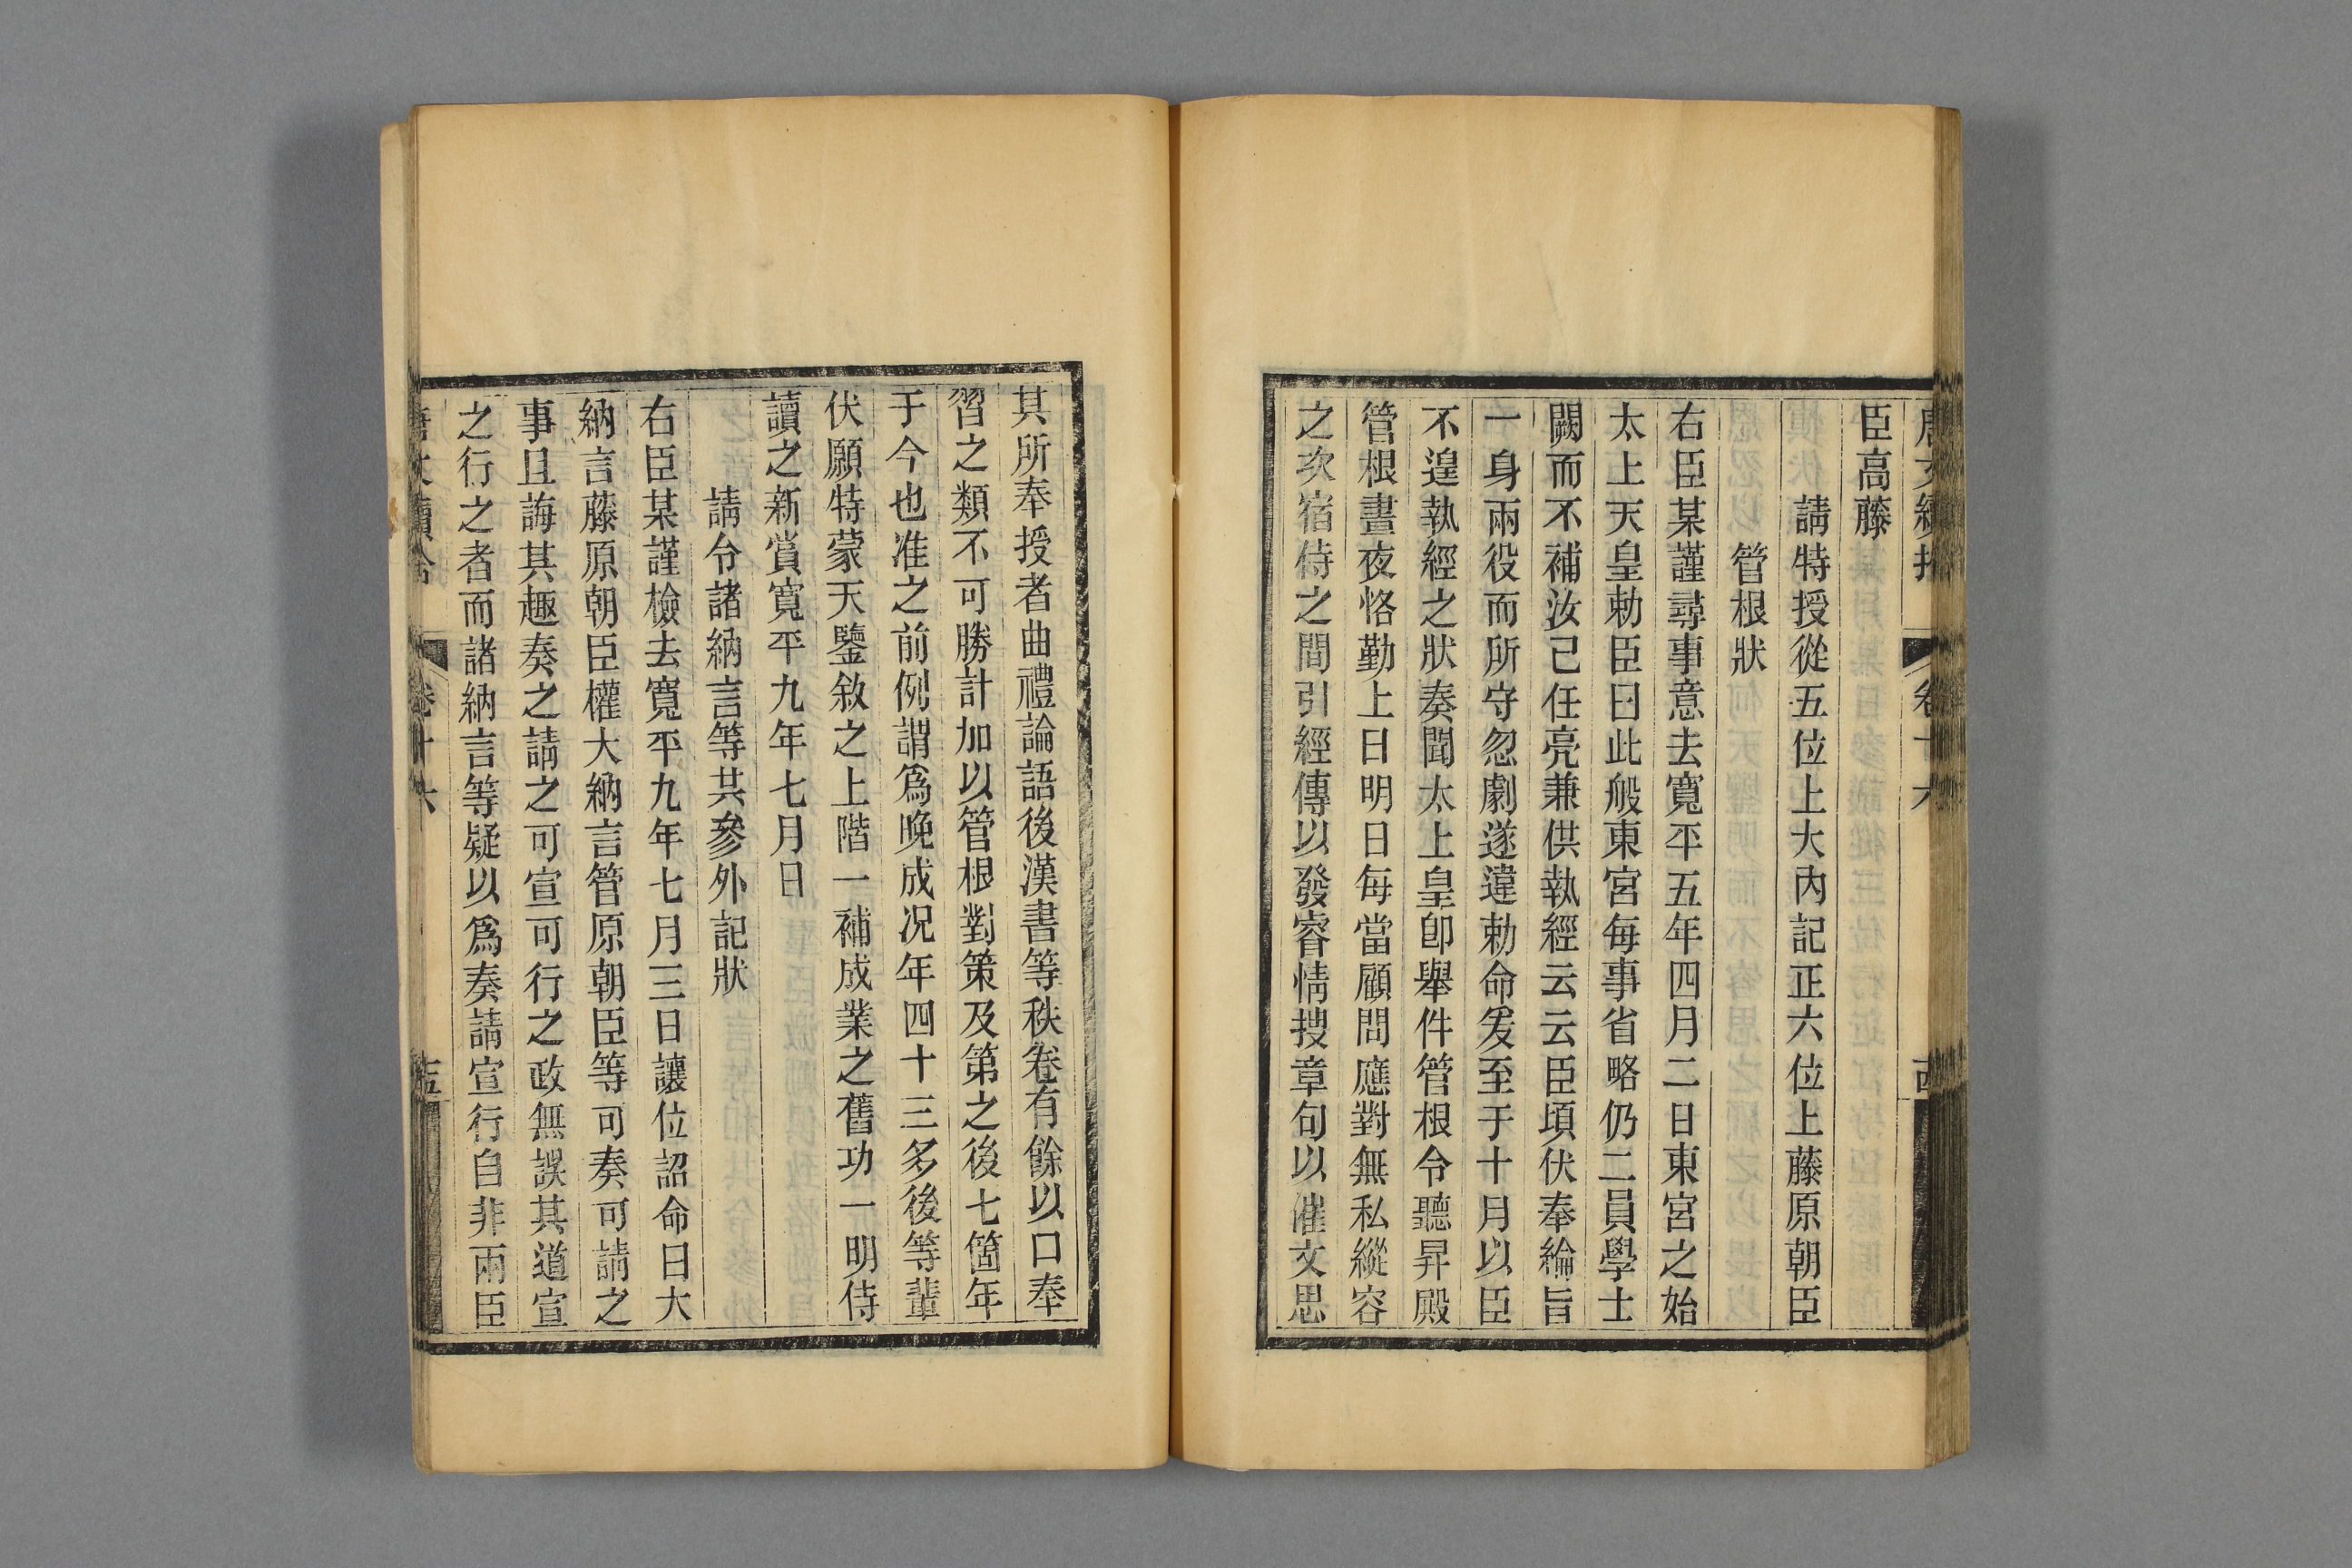 臣高藤
請特授從五位上大內記正六位上藤原朝臣
管根狀
右臣某謹尋事意去寬平五年四月二日東宮之始
太上天皇勅臣曰此般東宮每事省略仍二員學士
闕而不補汝己任亮兼供執經云云臣頃伏奉綸旨
一身兩役而所守忽劇遂違勅命爰至于十月以臣
不遑執經之狀奏聞太上皇卽舉件管根令聽昇殿
管根晝夜恪勤上日明日每當顧問應對無私縱容
之次宿侍之間引經傳以發睿情搜章句以催文思
其所奉授者曲禮論語後漢書等秩卷有餘以口奉
習之類不可勝計加以管根對策及第之後七箇年
于今也准之前例謂爲晚成况年四十三多後等輩
伏願特蒙天鑒敘之上階一補成業之舊功一明侍
讀之新賞寬平九年七月日
請令諸納言等共參外記狀
右臣某謹檢去寬平九年七月三日讓位詔命曰大
納言藤原朝臣權大納言管原朝臣等可奏可請之
事且誨其趣奏之請之可宣可行之政無誤其道宣
之行之者而諸納言等疑以爲奏請宣行自非兩臣
卷十六